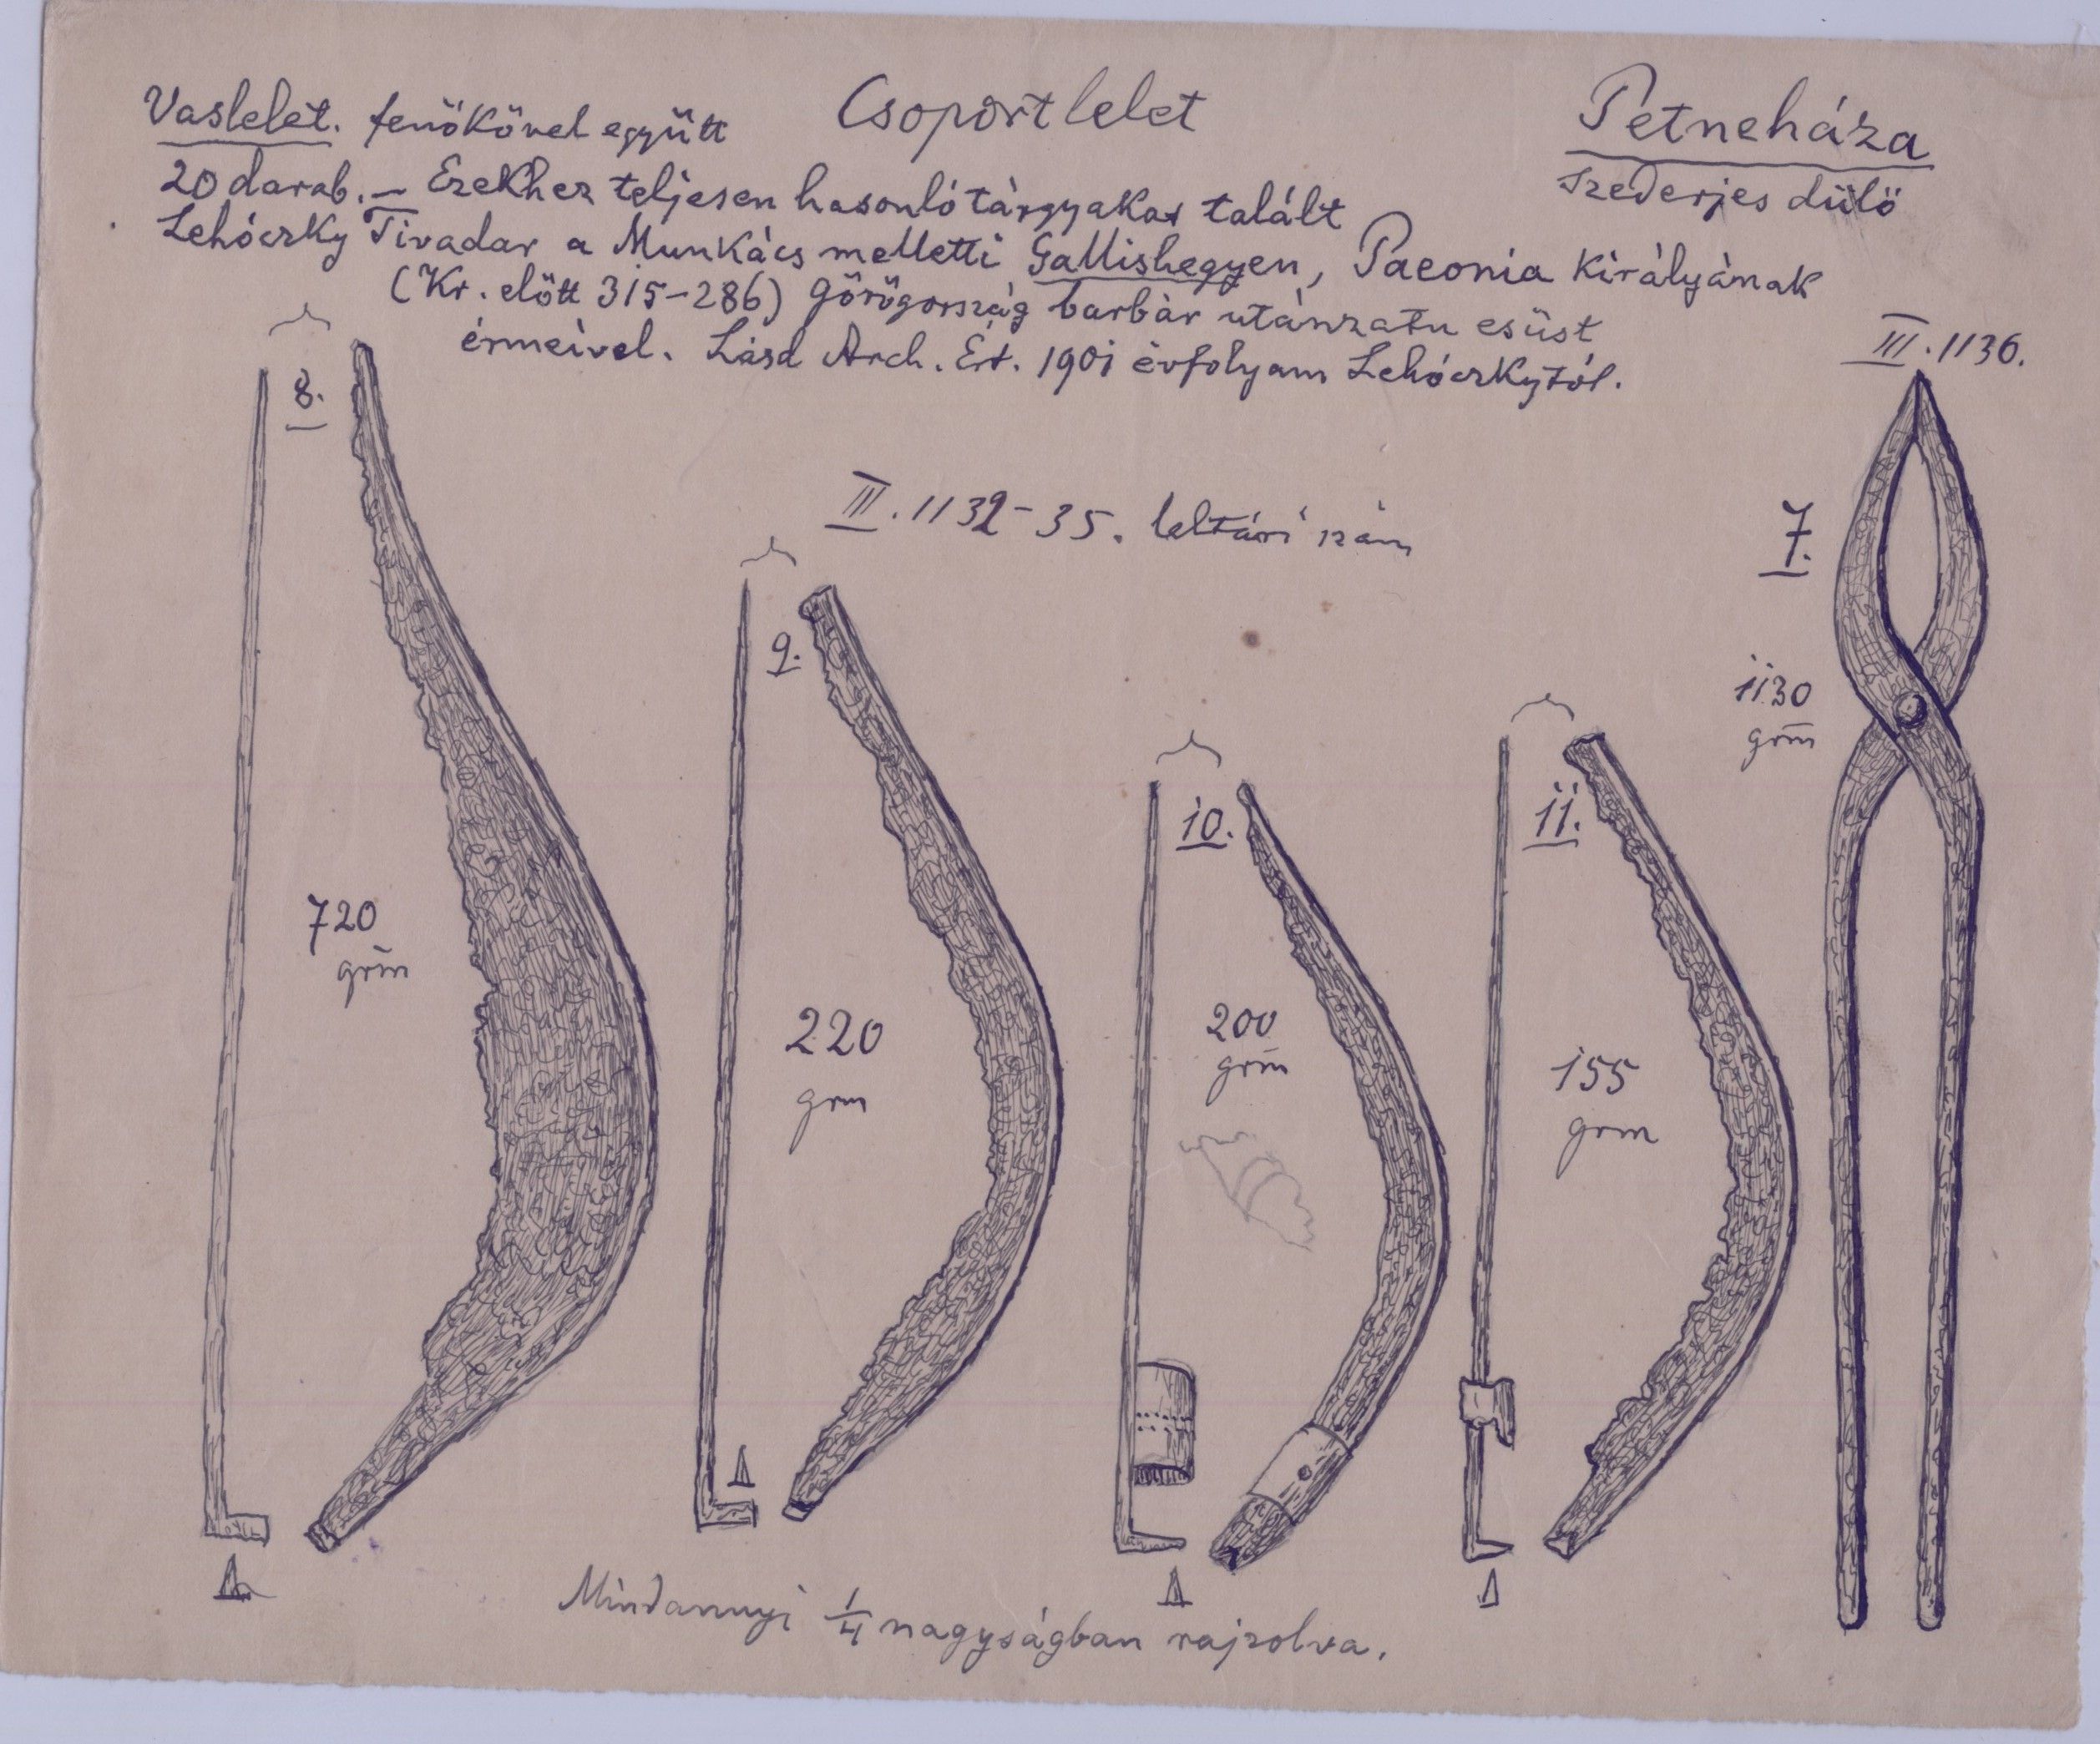 Csoportlelet
Petneháza
Szederjes dűlő
Vaslelet. fenőkővel együtt
20 darab. — Ezekhez teljesen hasonló tárgyakat talált
Lehóczky Tivadar a Munkács melletti Gallishegyen, Paeonia királyának
(Kr. előtt 315-286) Görögország barbár utánzatu esüst
érmeivel. Lásd Arch. Ért. 1901 évfolyam Lehóczkytól.
III. 1136.
8.
III. 1132-35. leltári szám
7.
9.
1130
grm
10.
11.
720
grm
220
grm
200
grm
155
grm
Mindannyi 1/4 nagyságban rajzolva.